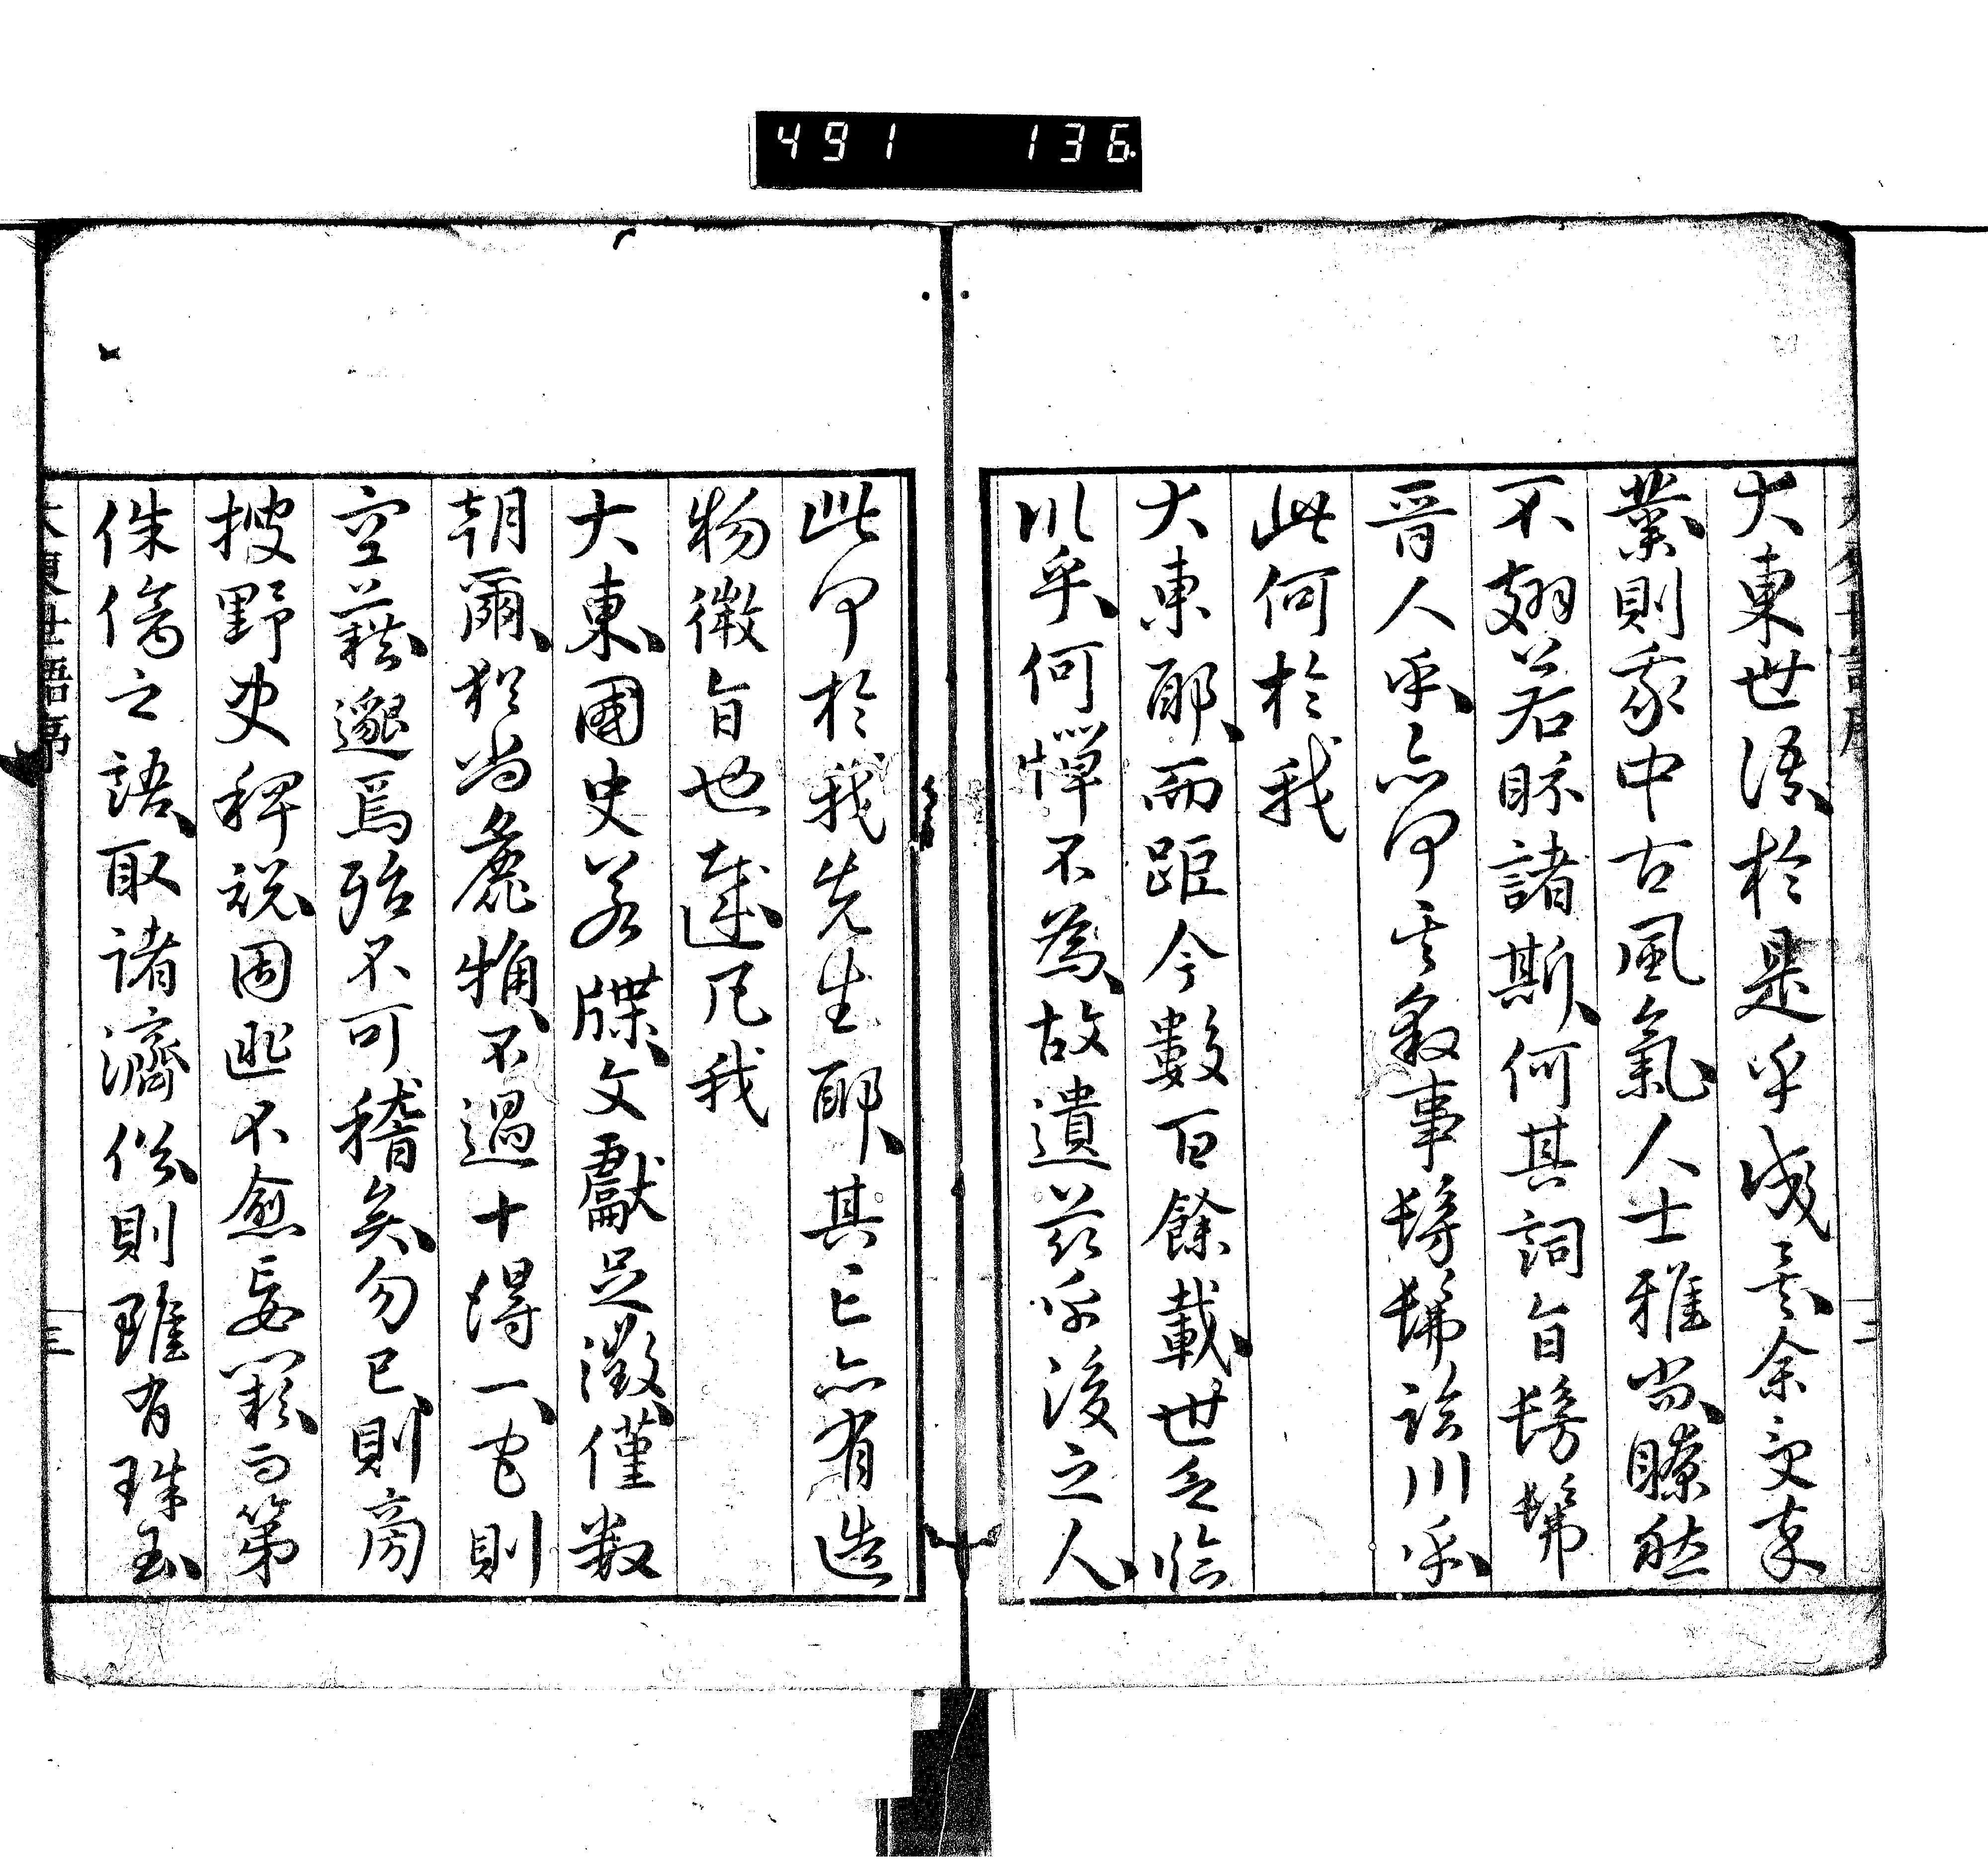 491 136
大東世語於是乎成矣余受卒
業則我中古風氣人士雅尚瞭然
不翅若眎諸斯何其詞旨髣髴
晉人乎亦何其敘事髣髴臨川乎
此何於我
大東耶而距今數百餘載世之臨
川乎何憚不為故遺茲乎後之人
此何於我先生耶其亡亦有造
物微旨也邪凡我
大東國史若牒文獻足徵僅數
朝爾猶尚麁觕不過十得一它則
空藉邈焉殆不可稽矣勿已則旁
搜野史稗說固匪不愈妄闕而第
侏僑之語取諸濟俗則雖有珠玉
大東世語序 二
大東世語序 三